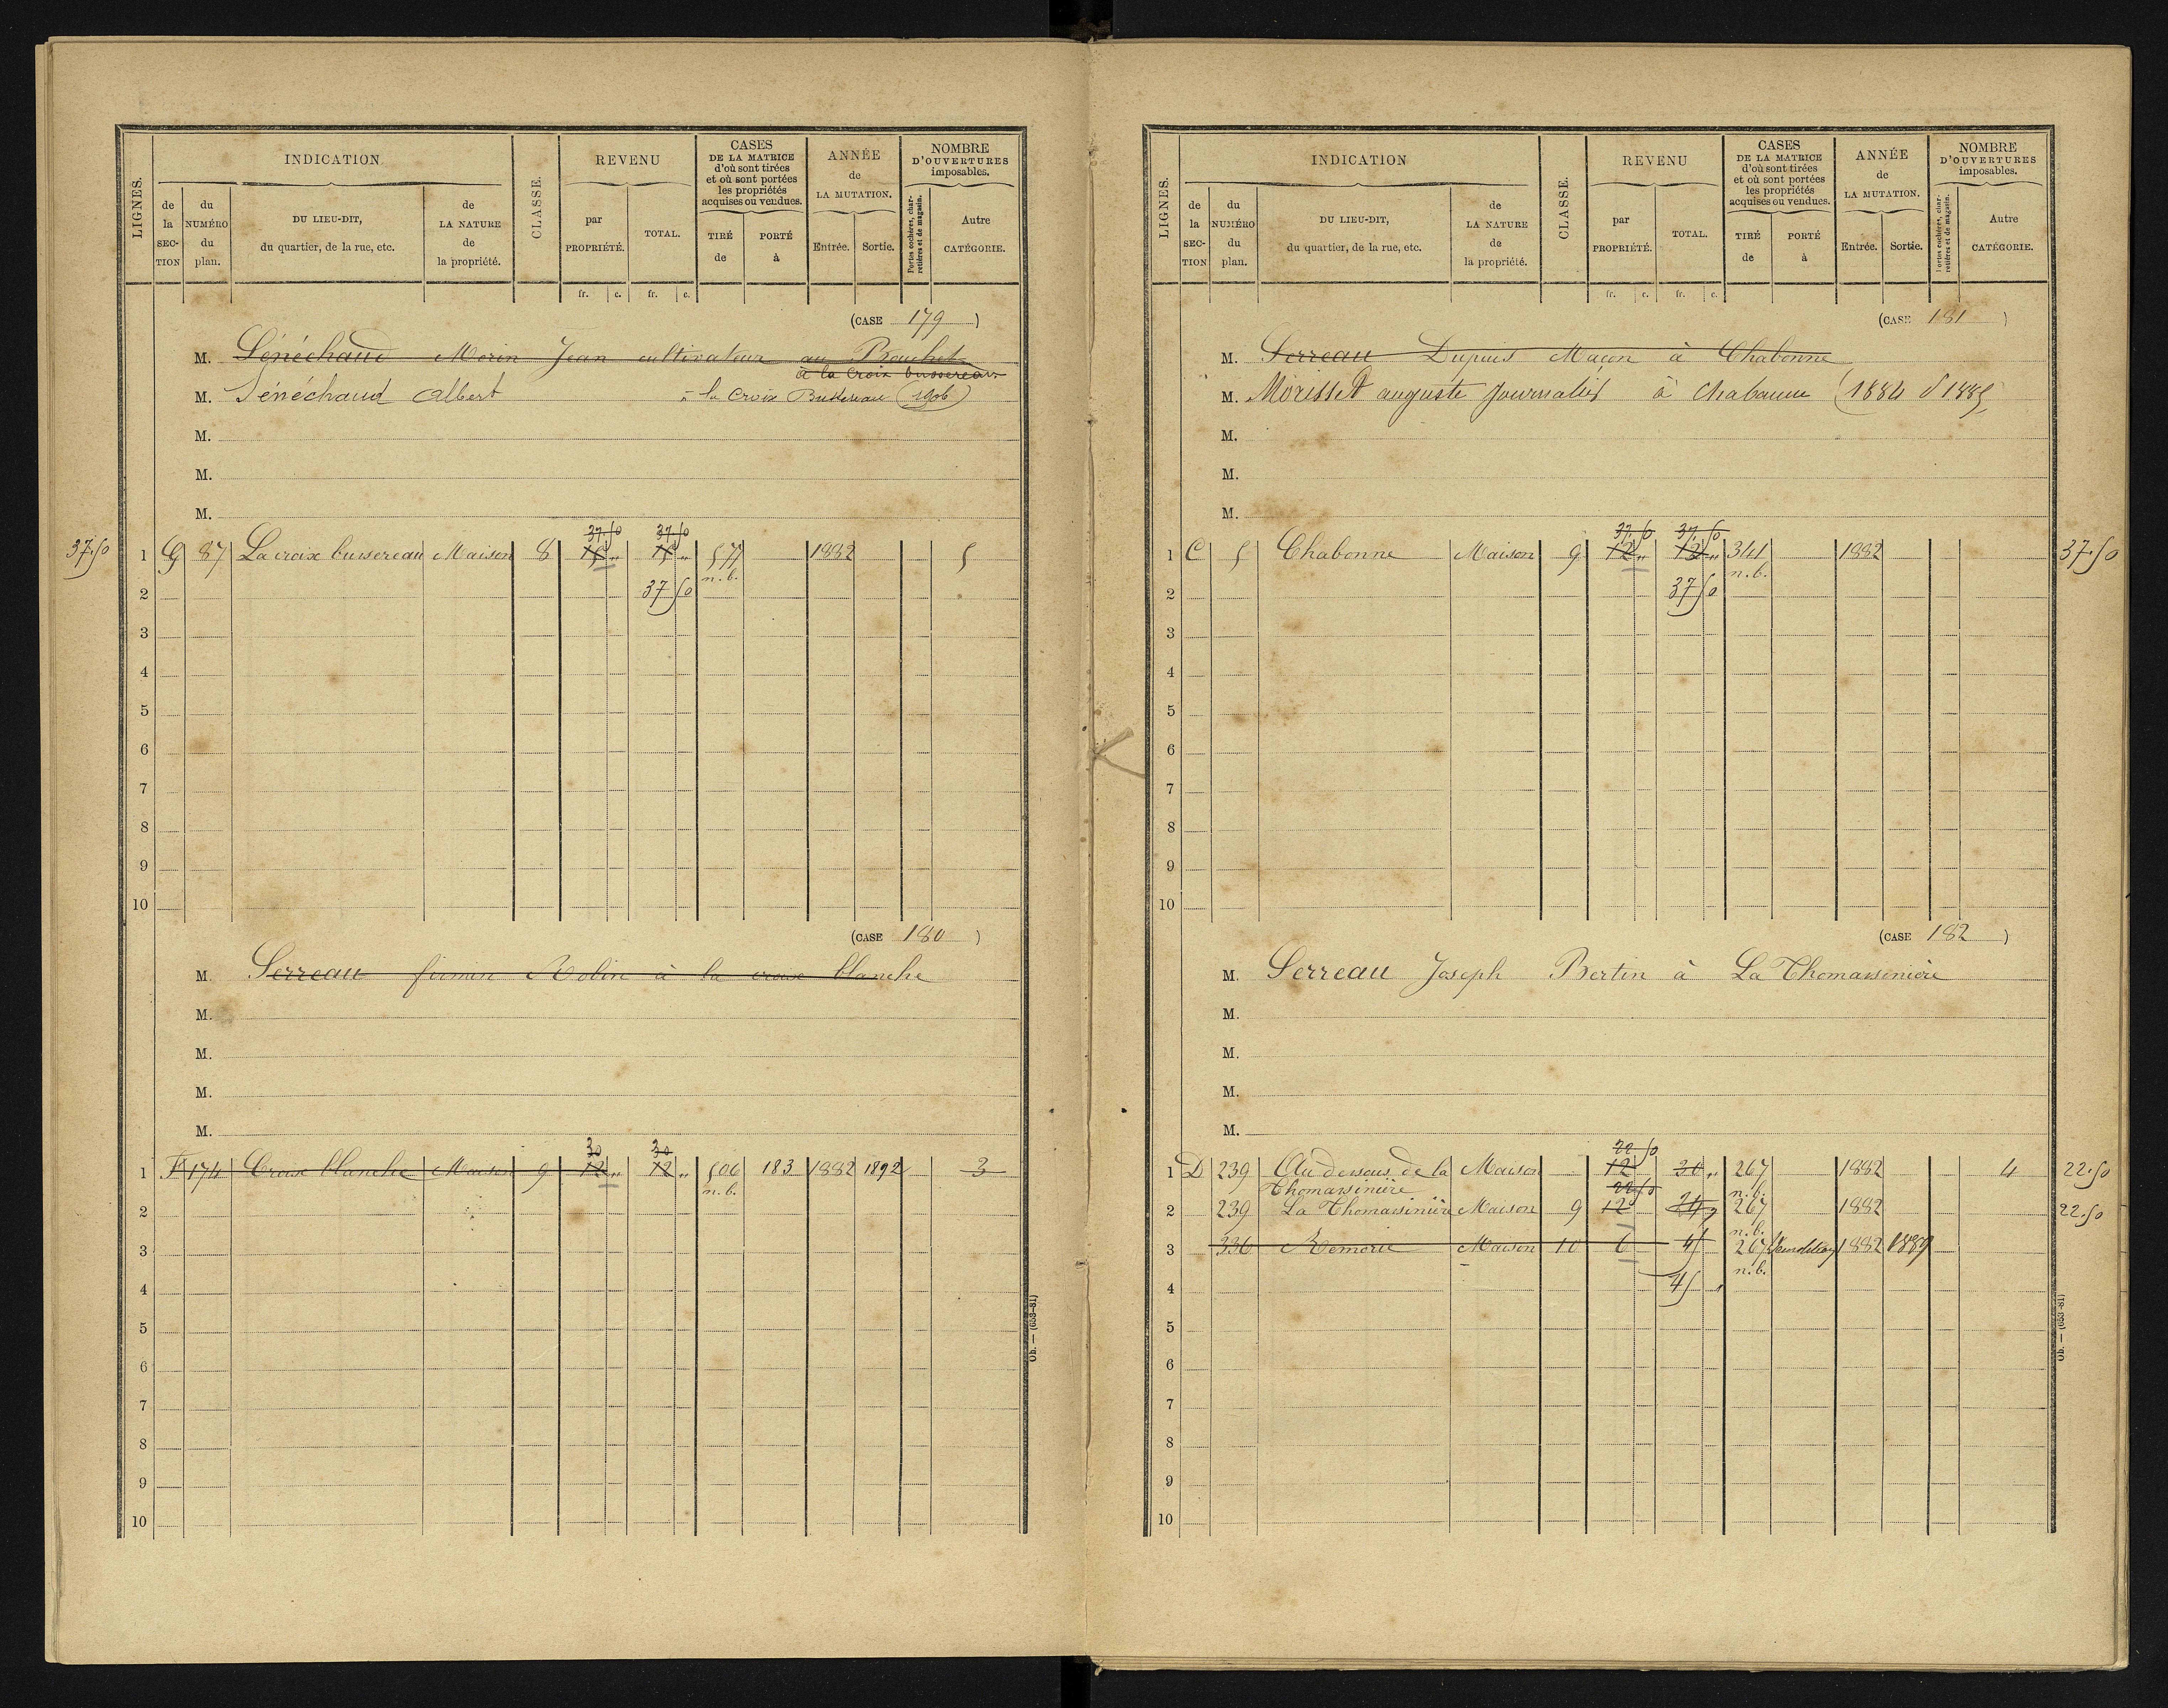 LIGNES. INDICATION CLASSE. REVENU CASES DE LA MATRICE d'où sont tirées et où sont portées les propriétés acquises ou vendues. ANNÉE de LA MUTATION. NOMBRE D'OUVERTURES imposables.
de la SECTION du NUMÉRO du plan. DU LIEU-DIT, du quartier, de la rue, etc. de LA NATURE de la propriété. par PROPRIÉTÉ. TOTAL. TIRÉ de PORTÉ à Entrée. Sortie. Portes cochères, charretières et de magasin. Autre CATÉGORIE.
fr. c. fr. c.
(CASE 179)
M. Sénéchaud Morin Jean cultivateur au Bouchet
à la Croix bussereau
M. Sénéchaud Albert à la Croix Bussereau (1906)
M.
M.
M.
37.50 37.50
37.50 1 G 87 La croix bussereau Maison 8 15 " 15 " 577 1882 5
n.b.
2 37 50
3
4
5
6
7
8
9
10
(CASE 180)
M. Serreau firmin Robin à la croix blanche
M.
M.
M.
M.
30 30
1 F 174 Croix blanche Maison 9 12 " 12 " 506 183 1882 1892 3
n.b.
2
3
4
5
6
7
8
9
10
Ob. — (653-81)
LIGNES. INDICATION CLASSE. REVENU CASES DE LA MATRICE d'où sont tirées et où sont portées les propriétés acquises ou vendues. ANNÉE de LA MUTATION. NOMBRE D'OUVERTURES imposables.
de la SECTION du NUMÉRO du plan. DU LIEU-DIT, du quartier, de la rue, etc. de LA NATURE de la propriété. par PROPRIÉTÉ. TOTAL. TIRÉ de PORTÉ à Entrée. Sortie. Portes cochères, charretières et de magasin. Autre CATÉGORIE.
fr. c. fr. c.
(CASE 181)
M. Serreau Dupuis Maçon à Chabonne
M. Morisset auguste Journalier à Chabanne (1884 d 1885
M.
M.
M.
37.50 37.50
1 C 5 Chabonne Maison 9 12 " 12 " 341 1882 37.50
n.b.
2 37 50
3
4
5
6
7
8
9
10
(CASE 182)
M. Serreau Joseph Bertin à La Thomassinière
M.
M.
M.
M.
22 50
1 D 239 Au dessous de la Maison 12 30 " 267 1882 4 22.50
Thomassinière 22 50 n.b.
2 239 La Thomassinière Maison 9 12 24 267 1882 22.50
n.b.
3 336 Remorie Maison 10 6 45 267 Démolition 1882 1889
n.b.
4 45 "
5
6
7
8
9
10
Ob. — (653-81)